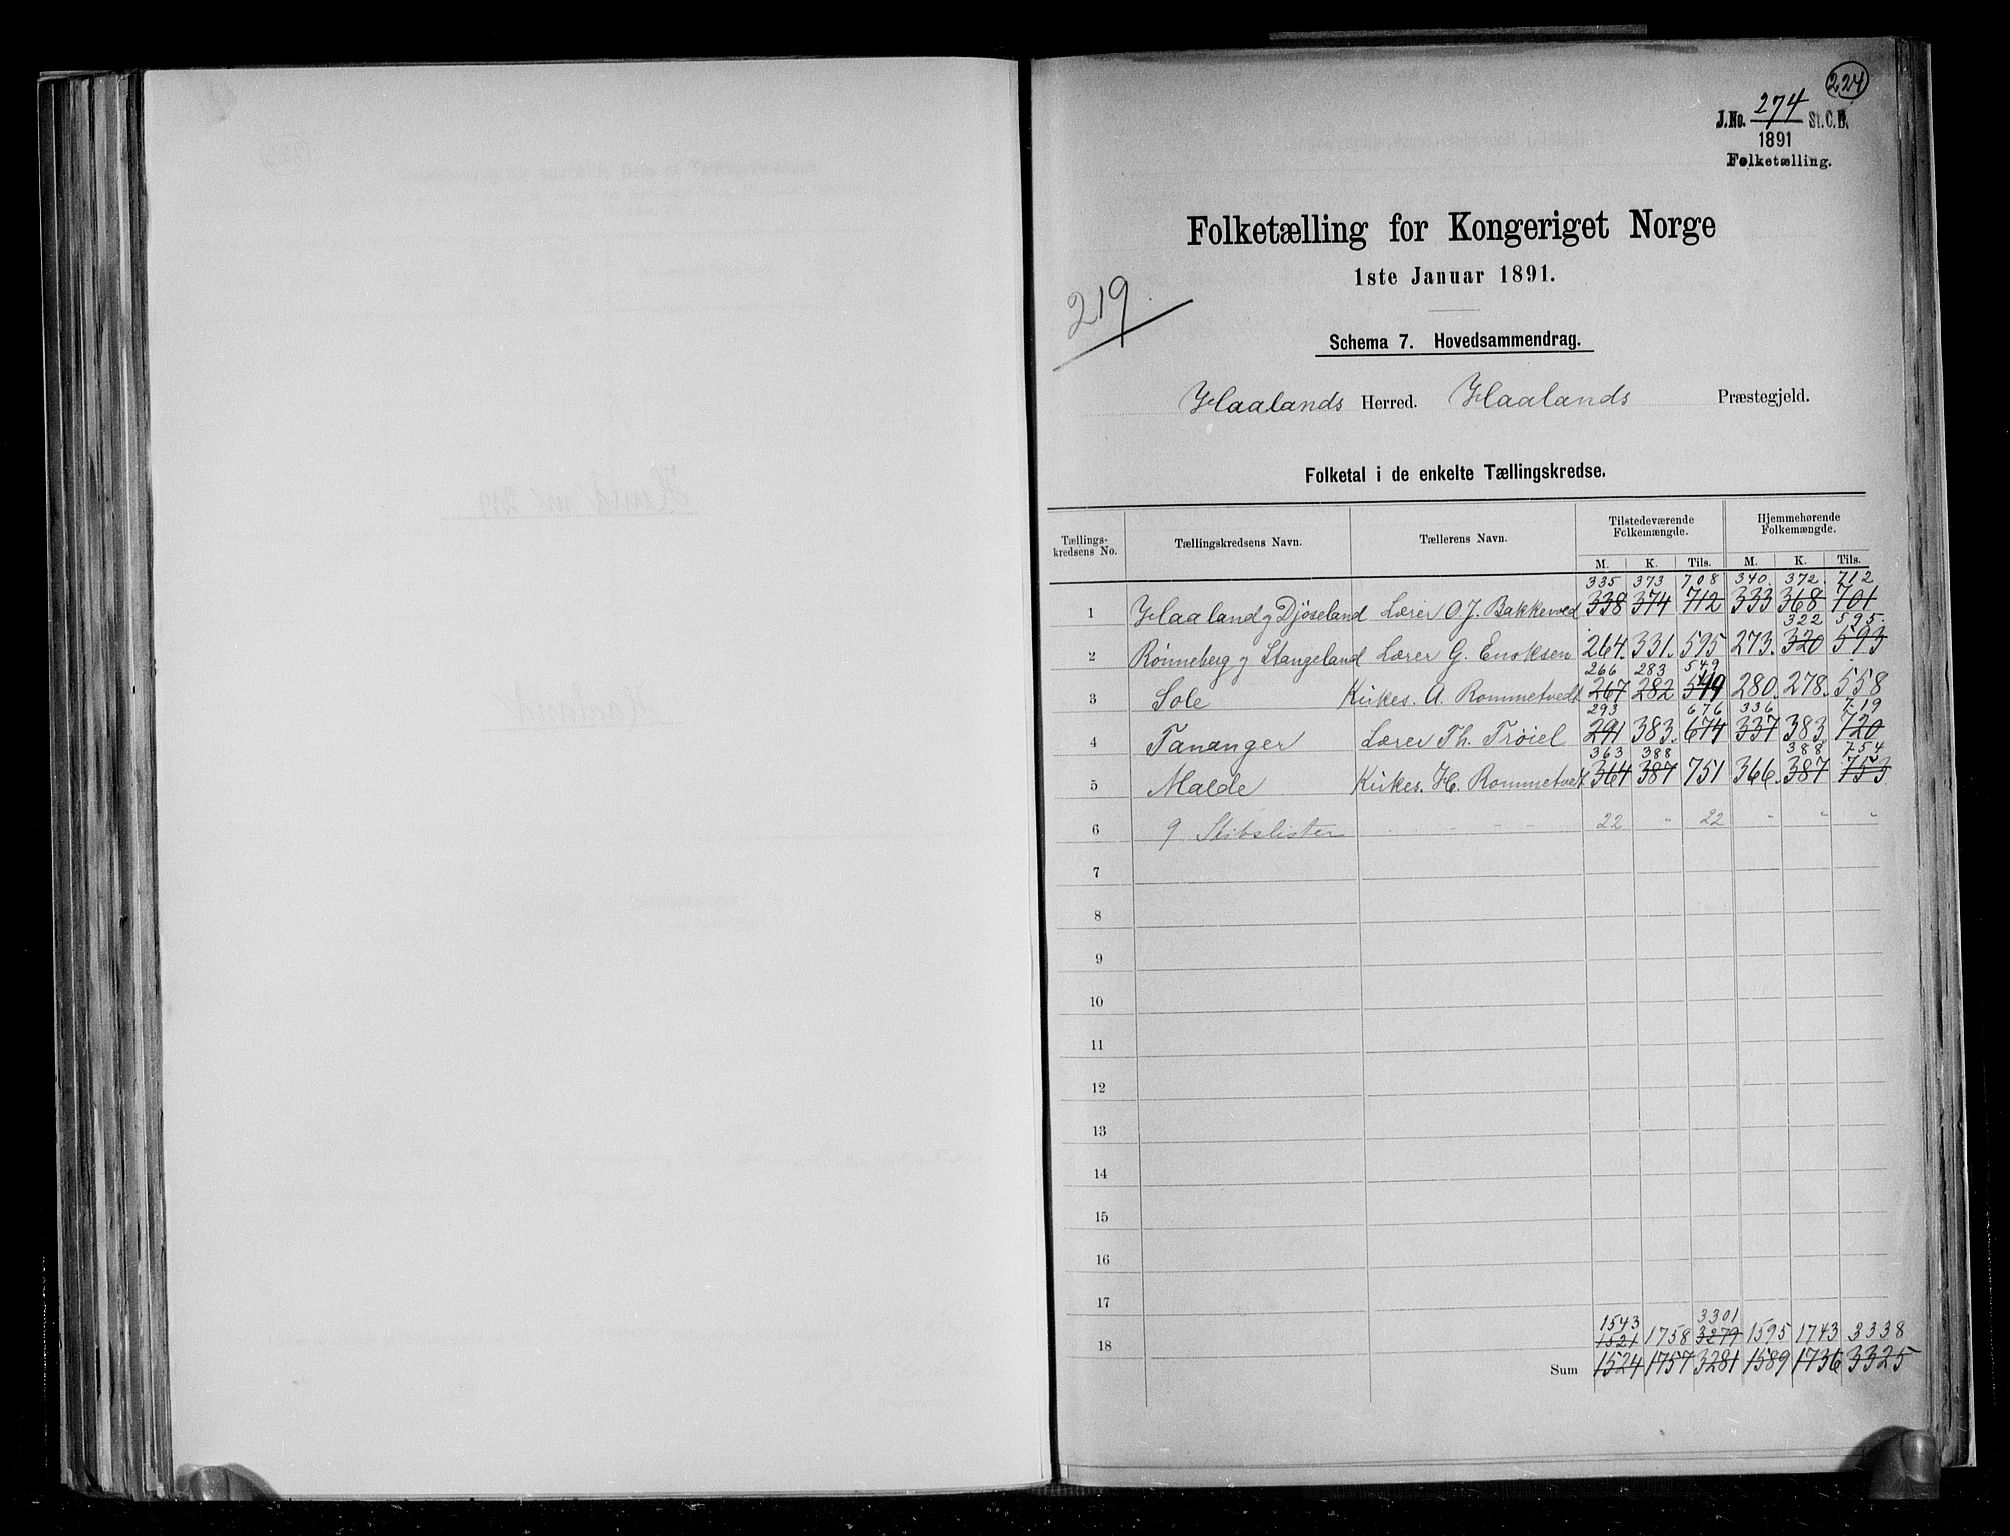 224
J.No. 274 St.C.B.
1891
Folketælling.
Folketælling for Kongeriget Norge
1ste Januar 1891.
219
Schema 7. Hovedsammendrag.
Haalands Herred. Haalands Præstegjeld.
Folketal i de enkelte Tællingskredse.
Tællings-kredsens No. Tællingskredsens Navn. Tællerens Navn. Tilstedeværende Folkemængde. Hjemmehørende Folkemængde.
M. K. Tils. M. K. Tils.
335 373 708 340. 372. 712
1 Haaland og Djöseland Lærer O. J. Bakkeved 338 374 712 333 368 701
322 595.
2 Rönneberg og Stangeland Lærer G. Enoksen 264. 331. 595 273. 320 593
266 283 549
3 Sole Kirkes. A. Rommetvedt 267 282 549 280. 278. 558
293 676 336 719
4 Tananger Lærer Th. Tröiel 291 383. 674 337 383. 720
363 388 388. 754
5 Malde Kirkes. H. Rommetvedt 364 387 751 366. 387 753
6 9 Skibslister 22 " 22 " " "
7
8
9
10
11
12
13
14
15
16
17
1543 3301
18 1521 1758 3279 1595 1743 3338
Sum 1524 1757 3281 1589 1736 3325